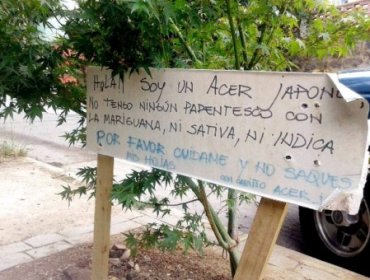 HOLA!! SOY UN ACER JAPONÉS,
NO TENGO NINGÚN PARENTESCO CON
LA MARIGUANA, NI SATIVA, NI INDICA
POR FAVOR CUIDAME Y NO SAQUES
MIS HOJAS
CON CARIÑO ACER.